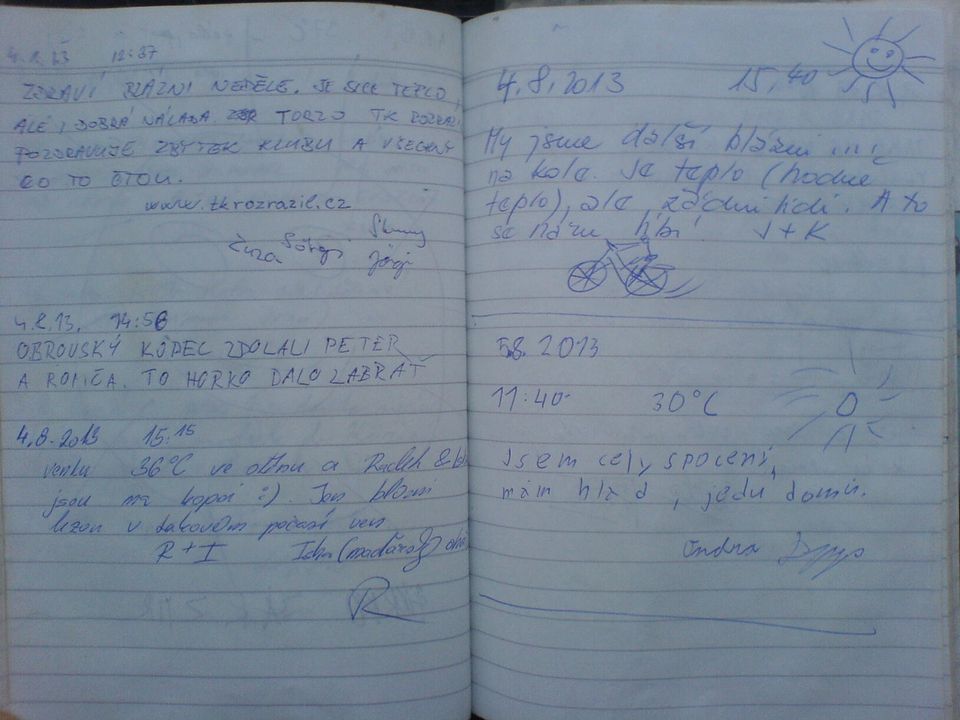 4.8.13 12:37
ZDRAVÍ BLÁZNI NEDĚLE. JE SICE TEPLO,
ALE I DOBRÁ NÁLADA TORZO TK ROZRAZIL
POZDRAVUJE ZBYTEK KLUBU A VŠECHNY
CO TO ČTOU.
www.tkrozrazil.cz
4.8.13. 14:56
OBROVSKÝ KOPEC ZDOLALI PETER
A ROMČA. TO HORKO DALO ZABRAT
4.8.2013 15:15
venku 36°C ve stínu a Radek &
jsou na kopci :). Jen blázni
lezou v takovém počasí ven
R + I
R
4.8.2013 15,40
My jsme další blázni ....
na kole. Je teplo (hodně
teplo), ale žádní lidi. A to
se nám líbí J + K
5.8.2013
11:40 30°C
Jsem celý spocený,
mám hlad, jedu domů.
Jindra